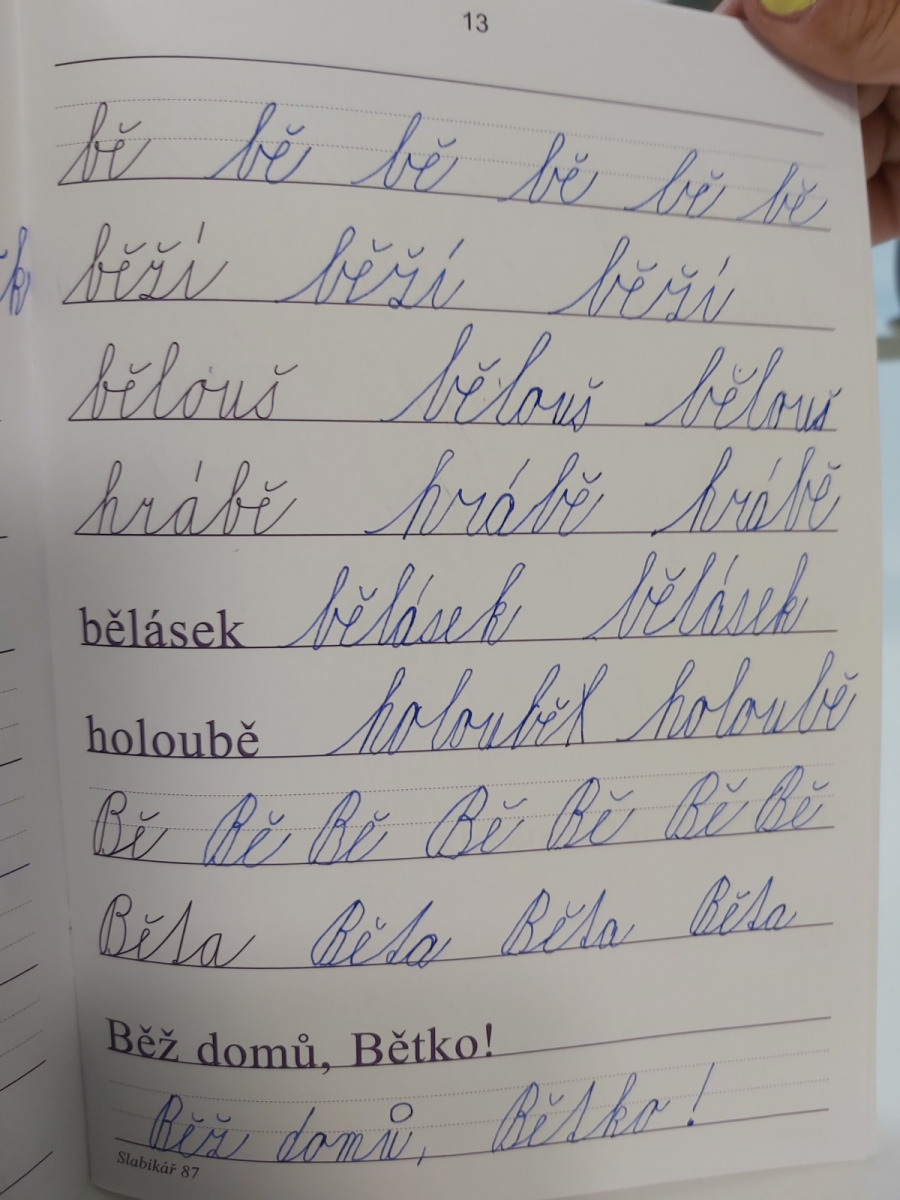 13
bě bě bě bě bě bě
běží běží běží
bělouš bělouš bělouš
hrábě hrábě hrábě
bělásek bělásek bělásek
holoubě holoubě holoubě
Bě Bě Bě Bě Bě Bě Bě
Běta Běta Běta Běta
Běž domů, Bětko!
Běž domů, Bětko!
Slabikář 87